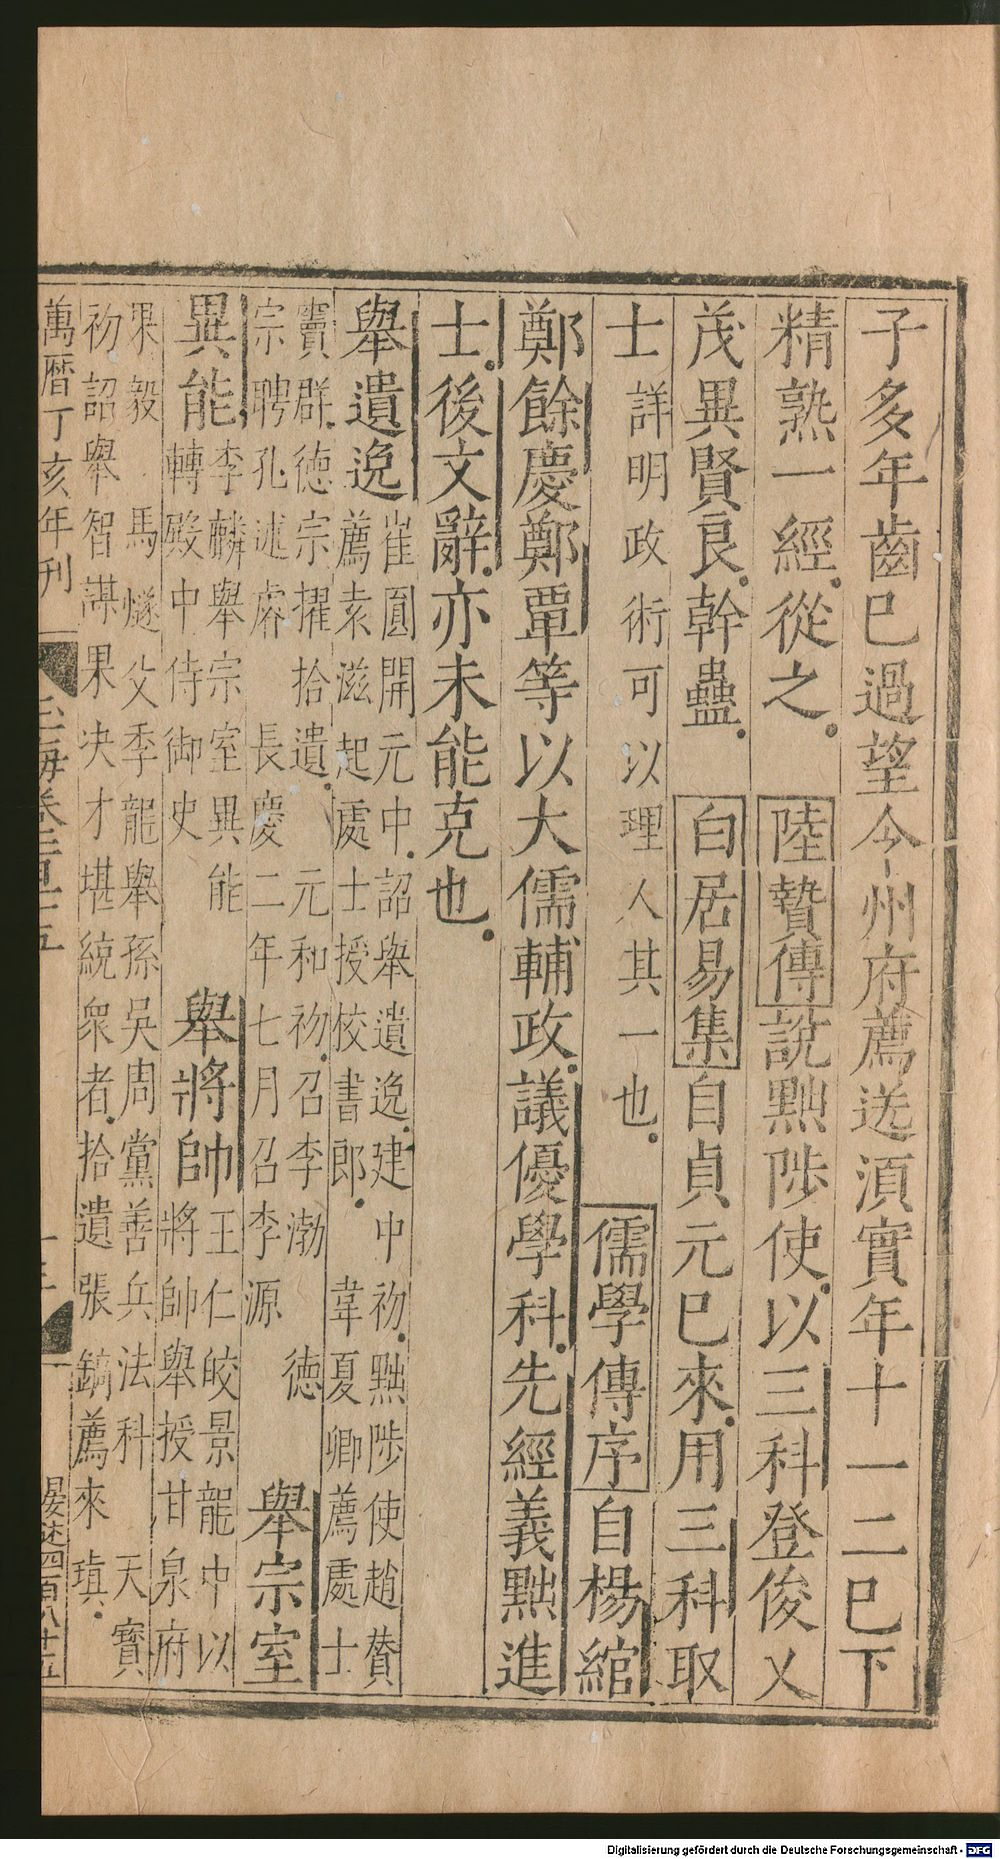 子多年齒巳過望今州府薦送湏實年十一二巳下
精熟一經從之 陸贄傳說黜陟使以三科登俊乂
茂異賢良幹蠱 白居易集自貞元巳來用三科取
士詳明政術可以理人其一也 儒學傳序自楊綰
鄭餘慶鄭覃等以大儒輔政議優學科先經義黜進
士後文辭亦未能克也
舉遺逸崔圓開元中詔舉遺逸建中初黜陟使趙贊
薦袁滋起處士授校書郎 韋夏卿薦處士
竇群德宗擢拾遺 元和初召李渤 德
宗聘孔述睿 長慶二年七月召李源 舉宗室
異能李麟舉宗室異能
轉殿中侍御史 舉將帥王仁皎景龍中以
將帥舉授甘泉府
果毅 馬燧父季龍舉孫吳周黨善兵法科 天寶
初詔舉智謀果决才堪統衆者拾遺張鎬薦來瑱
萬曆丁亥年刊 玉海卷 十
四百八十五
Digitalisierung gefördert durch die Deutsche Forschungsgemeinschaft - DFG